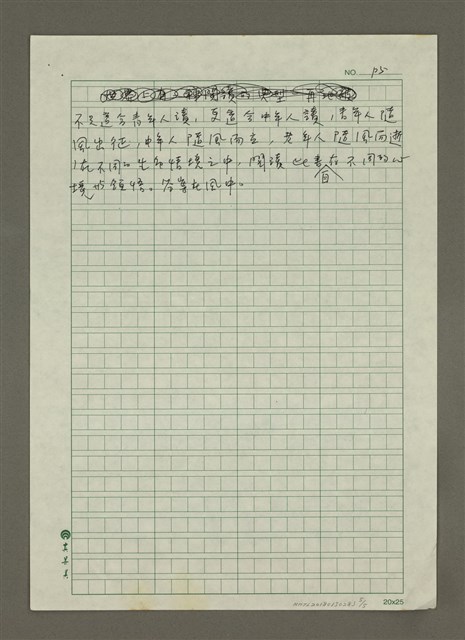 NO. P5
不只適合青年人讀,更適合中年人讀,青年人隨
風出征,中年人隨風而立,老年人隨風而逝
在不同的生命情境之中,閱讀此書自有不同的心
境與領悟。答案在風中。
20x25